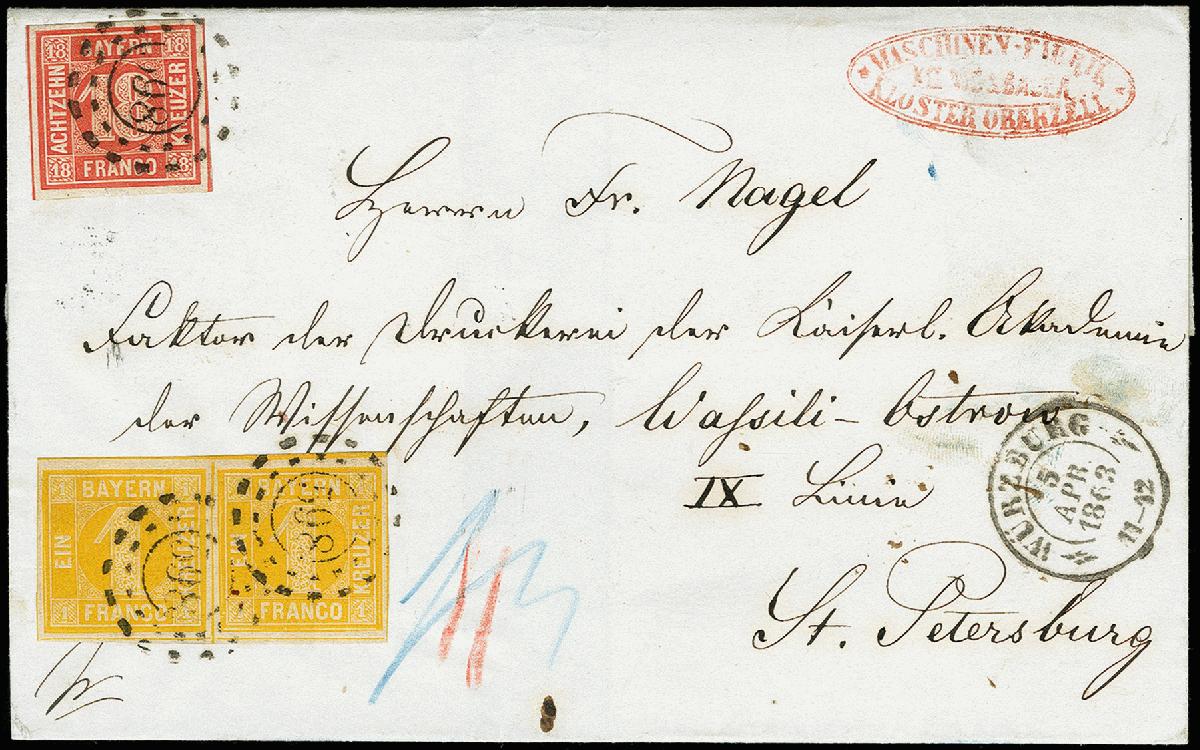 18 BAYERN 18
ACHTZEHN
18
KREUZER
18 FRANCO 18
MASCHINEN-FABRIK
KLOSTER OBERZELL
Herrn Fr. Nagel
Faktor der Druckerei der Kaiserl. Akademie
der Wissenschaften, Wassili-Ostrow
IX Linie
St. Petersburg
WÜRZBURG
5
APR
1863
11-12
1 BAYERN
EIN
1
1 FRANCO
BAYERN
EIN
1
KREUZER
FRANCO 1